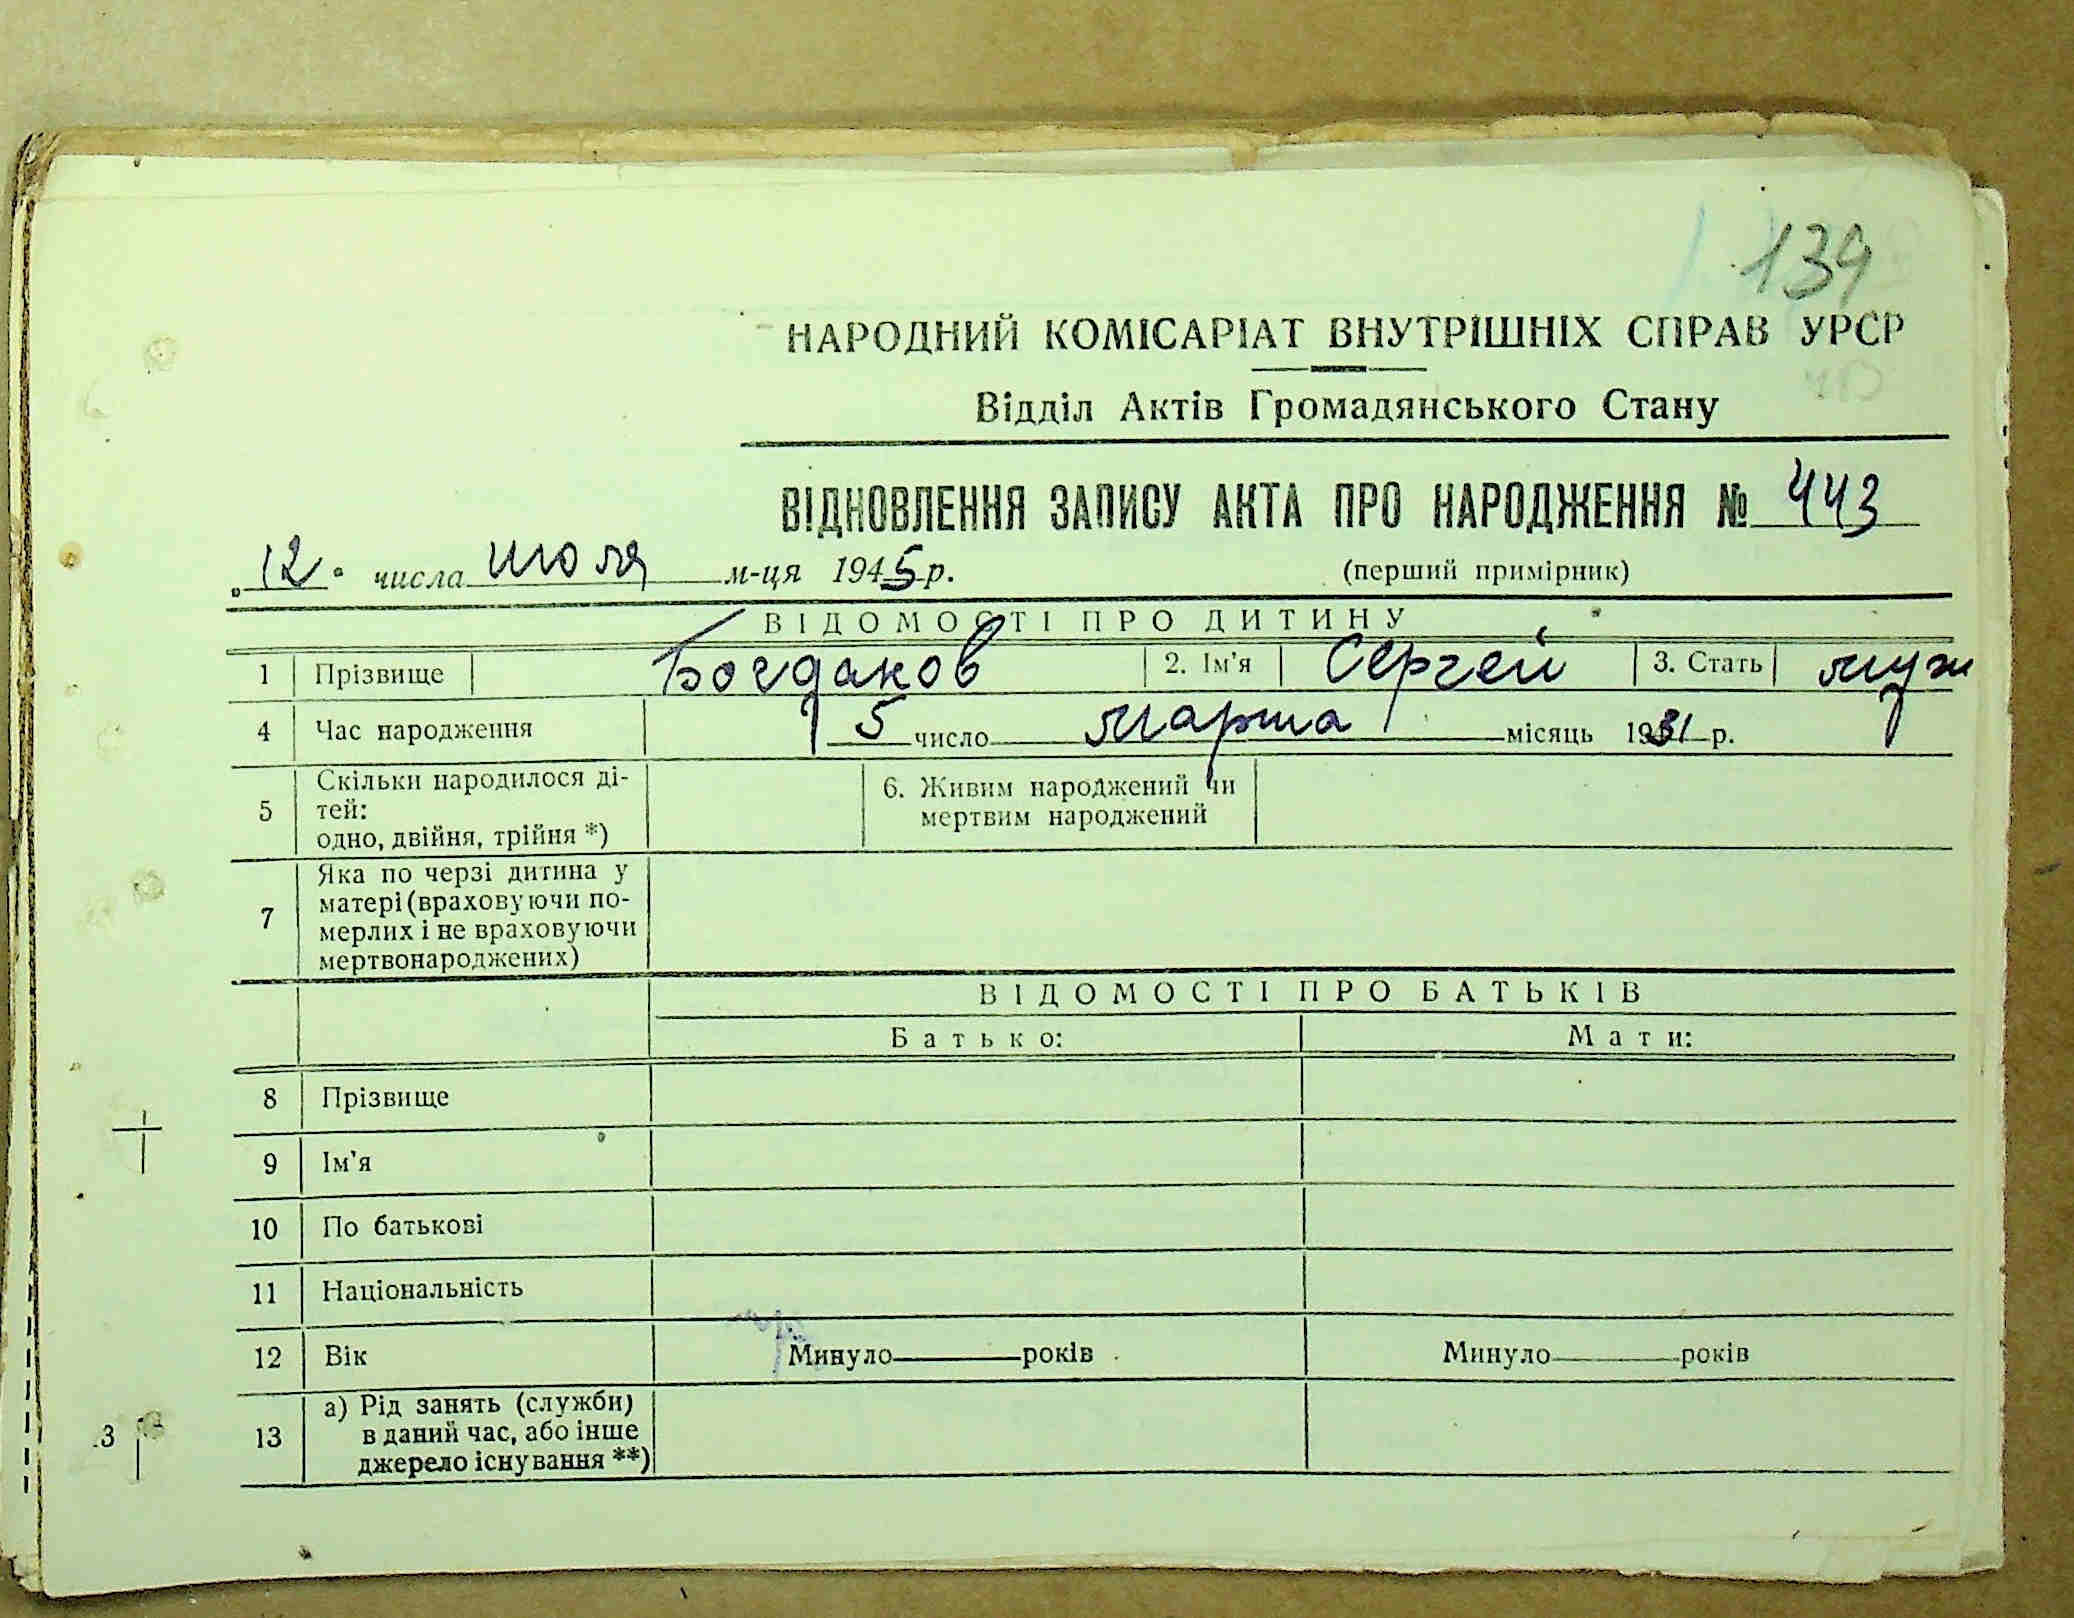 139
НАРОДНИЙ КОМІСАРІАТ ВНУТРІШНІХ СПРАВ УРСР
Відділ Актів Громадянського Стану
ВІДНОВЛЕННЯ ЗАПИСУ АКТА ПРО НАРОДЖЕННЯ № 443
„12" числа июля м-ця 1945 р. (перший примірник)
ВІДОМОСТІ ПРО ДИТИНУ
1 Прізвище Богданов 2. Ім'я Сергей 3. Стать муж
4 Час народження 5 число марта місяць 1931 р.
5 Скільки народилося ді-
тей:
одно, двійня, трійня *)
6. Живим народжений чи
мертвим народжений
7 Яка по черзі дитина у
матері (враховуючи по-
мерлих і не враховуючи
мертвонароджених)
ВІДОМОСТІ ПРО БАТЬКІВ
Батько: Мати:
8 Прізвище
9 Ім'я
10 По батькові
11 Національність
12 Вік Минуло років Минуло років
13 а) Рід занять (служби)
в даний час, або інше
джерело існування **)
.3